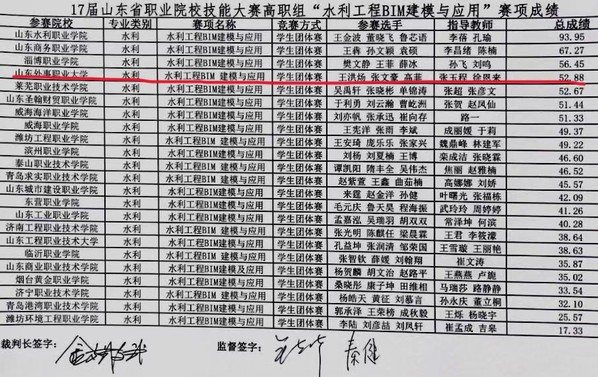 17届山东省职业院校技能大赛高职组“水利工程BIM建模与应用”赛项成绩
参赛院校 专业类 赛项名称 竞赛方式 参赛选手 指导教师 总成绩
山东水利职业学院 水利 水利工程BIM建模与应用 学生团体赛 王金波 董晓飞 鲁芯语 李蓓 孔瑜 93.95
山东商务职业学院 水利 水利工程BIM建模与应用 学生团体赛 王犇 孙文颖 袁硕 李昌绪 陈楠 67.27
淄博职业学院 水利 水利工程BIM建模与应用 学生团体赛 樊文静 王菲 薛冰 孙飞 刘鸣 56.45
山东外事职业大学 水利 水利工程BIM 建模与应用 学生团体赛 王洪炀 张文豪 高菲 张玉程 徐恩来 52.88
莱芜职业技术学院 水利 水利工程BIM 建模与应用 学生团体赛 吴禹轩 张晓彬 单锦涛 张超 张彦文 52.67
山东圣翰财贸职业学院 水利 水利工程BIM 建模与应用 学生团体赛 于利勇 刘云瀚 曹屹洲 张贺 赵凤仙 51.44
威海海洋职业学院 水利 水利工程BIM 建模与应用 学生团体赛 刘亦帆 张承迅 崔向存 路一 51.33
威海职业学院 水利 水利工程BIM 建模与应用 学生团体赛 王宪洋 张雨 李斌 成丽媛 于莉 49.37
潍坊工程职业学院 水利 水利工程BIM 建模与应用 学生团体赛 王安琦 庞乐乐 张家栋 魏鼎峰 王建红 49.22
滨州职业学院 水利 水利工程BIM 建模与应用 学生团体赛 刘杨 刘夏楠 王博 栾成洁 张晓霖 46.60
泰山职业技术学院 水利 水利工程BIM 建模与应用 学生团体赛 谭凯阳 隋丰全 吴伟杰 焦丽 赵雅楠 46.52
青岛求实职业技术学院 水利 水利工程BIM 建模与应用 学生团体赛 赵紫萱 王鑫 曲茹楠 高娜娜 刘娇 45.57
山东城市建设职业学院 水利 水利工程BIM 建模与应用 学生团体赛 来霆 赵金洋 孙健 叶曙光 张福栋 42.09
东营职业学院 水利 水利工程BIM 建模与应用 学生团体赛 毛元庆 鲁天昊 程海振 武玲玲 周婷婷 41.26
山东工业职业学院 水利 水利工程BIM 建模与应用 学生团体赛 孟嘉泓 吴瑞羽 胡双双 常泽坤 何滨 40.28
济南工程职业技术学院 水利 水利工程BIM 建模与应用 学生团体赛 张光明 陈麒任 梁晨霖 王君 李筱灌 38.64
山东工程职业技术大学 水利 水利工程BIM 建模与应用 学生团体赛 孔益坤 张润清 邹荣国 王雪璇 王丽艳 38.63
临沂职业学院 水利 水利工程BIM 建模与应用 学生团体赛 张智钦 薛媛 刘翰翔 崔文涛 35.87
山东商业职业技术学院 水利 水利工程BIM 建模与应用 学生团体赛 杨贺麟 胡文治 赵路平 王燕燕 卢脆 35.02
烟台黄金职业学院 水利 水利工程BIM 建模与应用 学生团体赛 桑晓彤 康子坤 田维相 马诗瑶 刘莎莎 33.54
济宁职业技术学院 水利 水利工程BIM 建模与应用 学生团体赛 杨皓天 黄征 刘慕言 孙永庆 董立桐 32.10
青岛港湾职业技术学院 水利 水利工程BIM 建模与应用 学生团体赛 郭承泽 王荣榜 成秋毅 王烁 杨晓宇 25.57
潍坊环境工程职业学院 水利 水利工程BIM 建模与应用 学生团体赛 李陆 刘彦喆 刘凤轩 崔孟成 吉皋 17.33
裁判长签字： 监督签字： 秦健